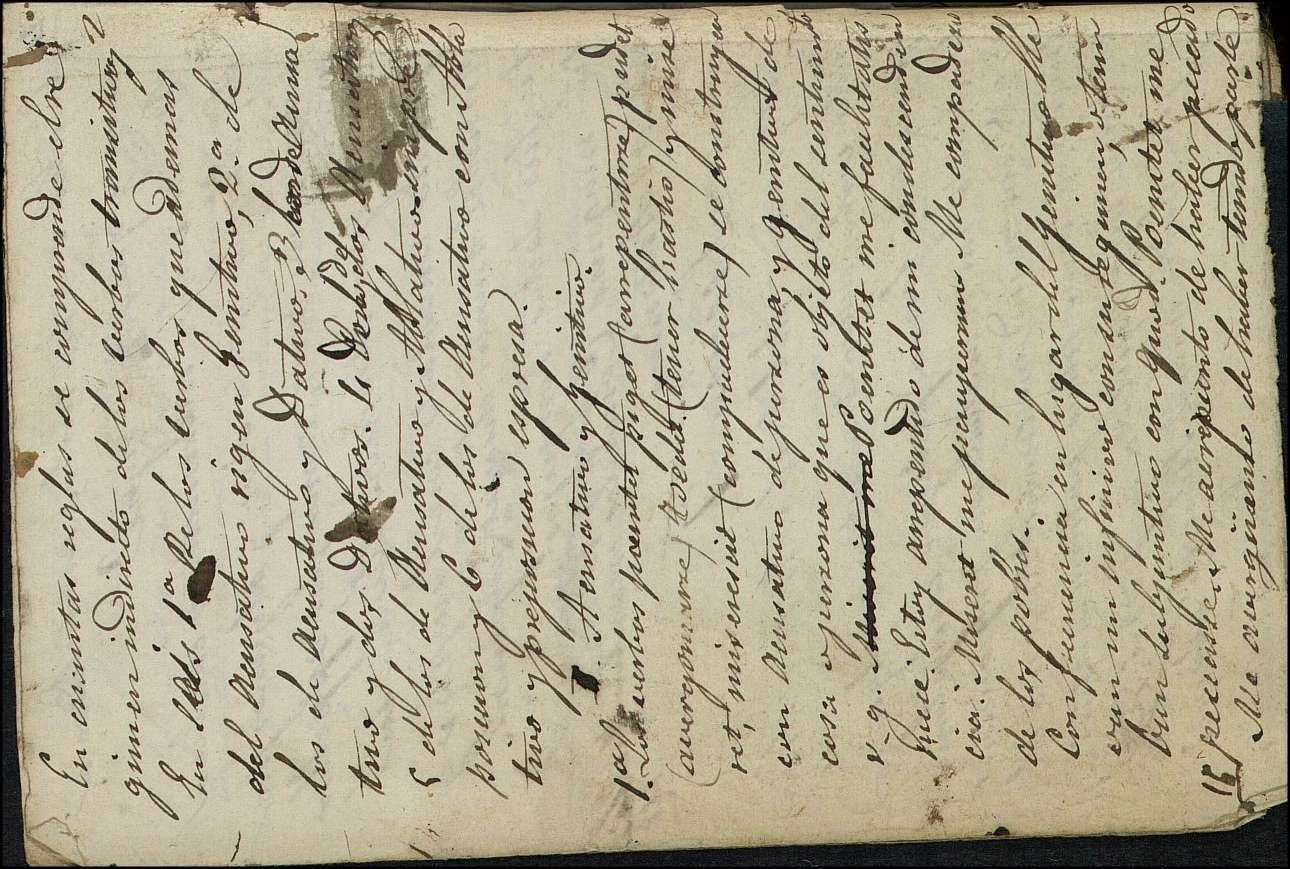 En cuantas reglas se comprende el re
gimen indirecto de los verbos transitivos?
En seis 1ª De los verbos que ademas
del Acusativo rigen Genitivo, 2ª de
los de Acusativo y Dativo, 3
tivo y dos Dativos. 4 De los de dos Acusativos
5 de los de Acusativo y Ablativo sin prepo
sicion y 6 de los de Acusativo con Abla
tivo y preposicion espresa.
Acusativo y Genitivo.
1ª Los verbos poenitet piget (arrepentirse) pudet
(avergonzarse) taedet (tener hastio) y mise
ret, miserescit (compadecerse) se construyen
con Acusativo de persona y genitivo de
cosa o persona que es objeto del sentimto
v. g. Poenitet me facultatis
Estoy arrepentido de mi condescenden
cia: Miseret me pauperum Me compadezco
de los pobres.
Con frecuencia en lugar del Genitivo lle
van un infinitivo con su regimen, o tam
bien subjuntivo con quod: Poenitet me
peccasse: Me arrepiento de haber pecado
Me averguenzo de haber tenido parte
15